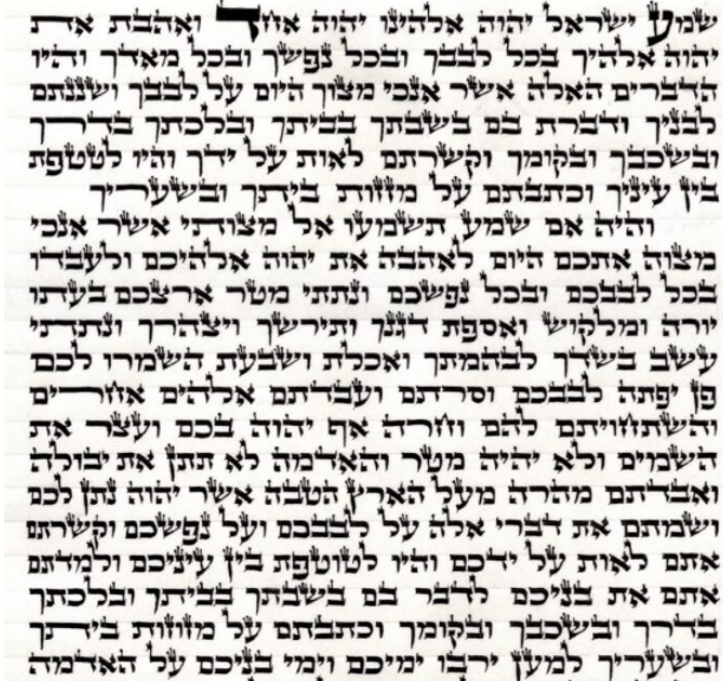 שמע ישראל יהוה אלהינו יהוה אחד ואהבת את
יהוה אלהיך בכל לבבך ובכל נפשך ובכל מאדך והיו
הדברים האלה אשר אנכי מצוך היום על לבבך ושננתם
לבניך ודברת בם בשבתך בביתך ובלכתך בדרך
ובשכבך ובקומך וקשרתם לאות על ידך והיו לטטפת
בין עיניך וכתבתם על מזזות ביתך ובשעריך
והיה אם שמע תשמעו אל מצותי אשר אנכי
מצוה אתכם היום לאהבה את יהוה אלהיכם ולעבדו
בכל לבבכם ובכל נפשכם ונתתי מטר ארצכם בעתו
יורה ומלקוש ואספת דגנך ותירשך ויצהרך ונתתי
עשב בשדך לבהמתך ואכלת ושבעת השמרו לכם
פן יפתה לבבכם וסרתם ועבדתם אלהים אחרים
והשתחויתם להם וחרה אף יהוה בכם ועצר את
השמים ולא יהיה מטר והאדמה לא תתן את יבולה
ואבדתם מהרה מעל הארץ הטבה אשר יהוה נתן לכם
ושמתם את דברי אלה על לבבכם ועל נפשכם וקשרתם
אתם לאות על ידכם והיו לטוטפת בין עיניכם ולמדתם
אתם את בניכם לדבר בם בשבתך בביתך ובלכתך
בדרך ובשכבך ובקומך וכתבתם על מזוזות ביתך
ובשעריך למען ירבו ימיכם וימי בניכם על האדמה